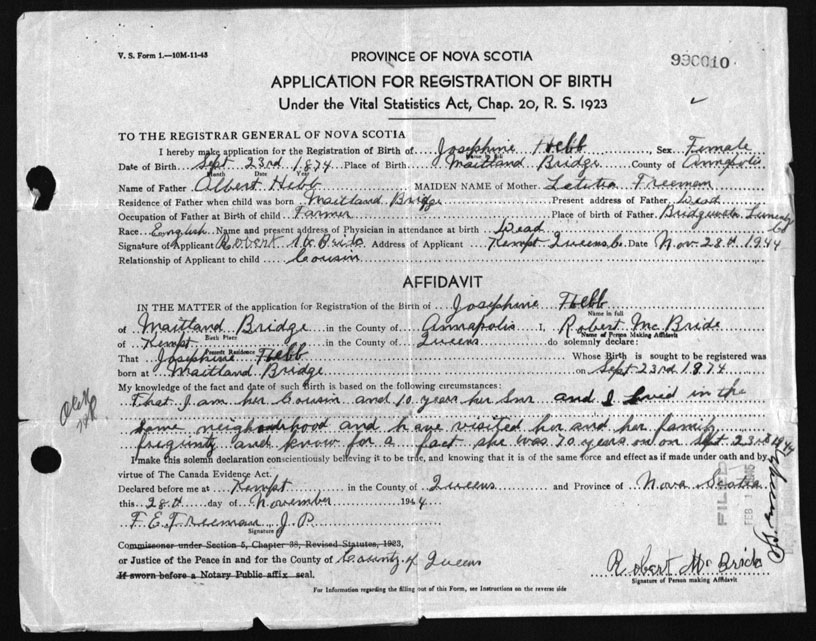 V. S. Form 1.—10M-11-43
PROVINCE OF NOVA SCOTIA
990010
APPLICATION FOR REGISTRATION OF BIRTH
Under the Vital Statistics Act, Chap. 20, R. S. 1923
TO THE REGISTRAR GENERAL OF NOVA SCOTIA
I hereby make application for the Registration of Birth of Josephine Hebb, Sex Female
Name in full
Date of Birth Sept 23rd 1874 Place of Birth Maitland Bridge County of Annapolis
Month Date Year
Name of Father Albert Hebb MAIDEN NAME of Mother Letitia Freeman
Residence of Father when child was born Maitland Bridge Present address of Father Dead
Occupation of Father at Birth of child Farmer Place of birth of Father Bridgewater Lunenbg Co
Race English Name and present address of Physician in attendance at birth Dead
Signature of Applicant Robert Mc Bride Address of Applicant Kempt Queens Co Date Nov. 28th 1944
Relationship of Applicant to child Cousin
AFFIDAVIT
IN THE MATTER of the application for Registration of the Birth of Josephine Hebb
Name in full
of Maitland Bridge in the County of Annapolis I, Robert Mc Bride
Birth Place Name of Person Making Affidavit
of Kempt in the County of Queens do solemnly declare:
Present Residence
That Josephine Hebb Whose Birth is sought to be registered was
born at Maitland Bridge on Sept 23rd 1874
My knowledge of the fact and date of such Birth is based on the following circumstances:
That I am her Cousin and 10 year her Snr and I lived in the
same neighbourhood and have visited her and her family
frequnty and know for a fact she was 70 years on on Sept 23rd 1944
I make this solemn declaration conscientiously believing it to be true, and knowing that it is of the same force and effect as if made under oath and by
virtue of The Canada Evidence Act.
Declared before me at Kempt in the County of Queens and Province of Nova Scotia
this 28th day of November 1944
F. E. Freeman J P
Signature
Commissoner under Section 5, Chapter 38, Revised Statutes, 1923,
or Justice of the Peace in and for the County of County of Queens
If sworn before a Notary Public affix seal.
Robert Mc Bride
Signature of Person making Affidavit
For Information regarding the filling out of this Form, see Instructions on the reverse side
FILED
FEB 1 1945